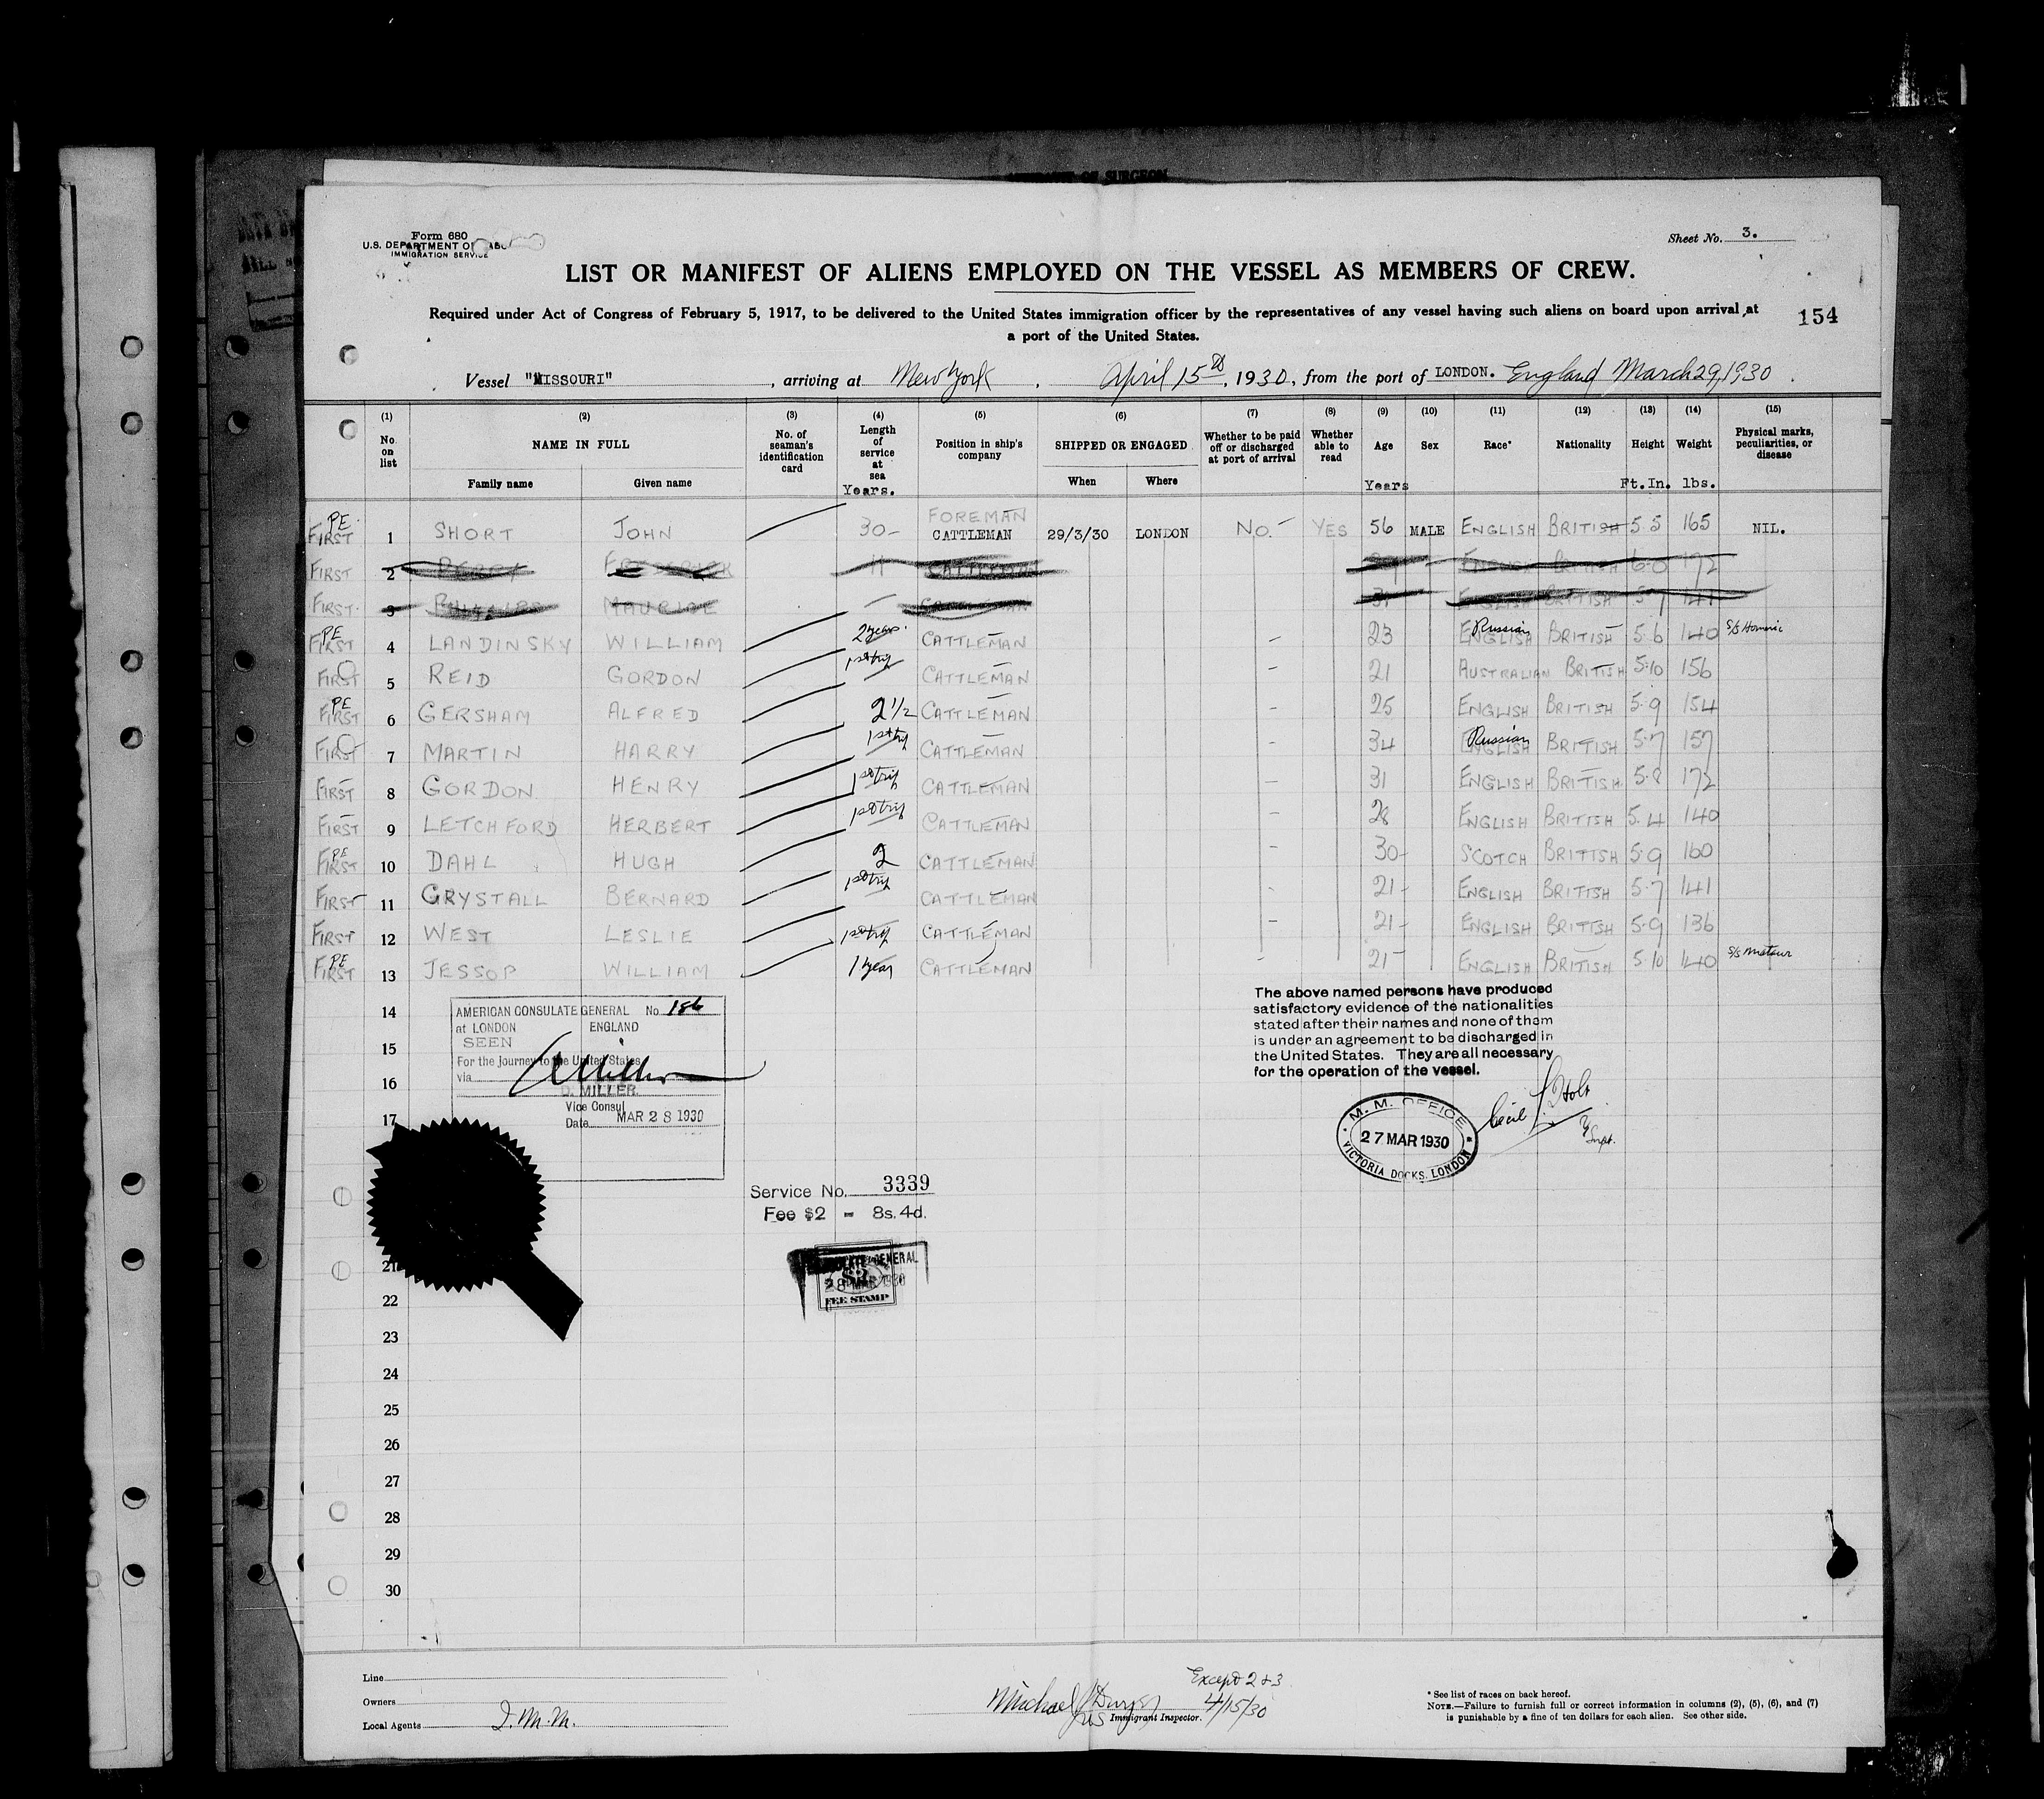 AFFIDAVIT OF SURGEON
Form 680
U.S. DEPARTMENT OF LABOR
IMMIGRATION SERVICE
Sheet No. 3.
LIST OR MANIFEST OF ALIENS EMPLOYED ON THE VESSEL AS MEMBERS OF CREW.
Required under Act of Congress of February 5, 1917, to be delivered to the United States immigration officer by the representatives of any vessel having such aliens on board upon arrival at
a port of the United States.
154
Vessel "MISSOURI", arriving at New York, April 15th, 1930, from the port of LONDON. England March 29, 1930.
(1) (2) (3) (4) (5) (6) (7) (8) (9) (10) (11) (12) (13) (14) (15)
No. on list NAME IN FULL Family name Given name No. of seaman's identification card Length of service at sea Years. Position in ship's company SHIPPED OR ENGAGED When Where Whether to be paid off or discharged at port of arrival Whether able to read Age Years Sex Race* Nationality Height Ft. In. Weight lbs. Physical marks, peculiarities, or disease
PE FIRST 1 SHORT JOHN 30- FOREMAN CATTLEMAN 29/3/30 LONDON NO.- YES 56 MALE ENGLISH BRITISH 5 5 165 NIL.
FIRST 2 11 CATTLEMAN ENGLISH BRITISH 6-0 172
FIRST 3 MAURICE 31 ENGLISH BRITISH 5 7 141
PE FIRST 4 LANDINSKY WILLIAM 2 years. CATTLEMAN - 23 ENGLISH Russian BRITISH 5 6 140 S/S Homeric
FIRST 5 REID GORDON 1st trip CATTLEMAN - 21 AUSTRALIAN BRITISH 5.10 156
PE FIRST 6 GERSHAM ALFRED 2 1/2 CATTLEMAN - 25 ENGLISH BRITISH 5.9 154
FIRST 7 MARTIN HARRY 1st trip CATTLEMAN - 34 ENGLISH Russian BRITISH 5.7 157
FIRST 8 GORDON HENRY 1st trip CATTLEMAN - 31 ENGLISH BRITISH 5.8 172
FIRST 9 LETCHFORD HERBERT 1st trip CATTLEMAN - 28 ENGLISH BRITISH 5.4 140
PE FIRST 10 DAHL HUGH 2 CATTLEMAN - 30- SCOTCH BRITISH 5.9 160
FIRST 11 GRYSTALL BERNARD 1st trip CATTLEMAN - 21- ENGLISH BRITISH 5.7 141
FIRST 12 WEST LESLIE 1st trip CATTLEMAN - 21- ENGLISH BRITISH 5.9 136
PE FIRST 13 JESSOP WILLIAM 1 year CATTLEMAN - 21- ENGLISH BRITISH 5.10 140
14
15
16
17
AMERICAN CONSULATE GENERAL No. 186
at LONDON ENGLAND
SEEN
For the Journey to the United States
via
D. MILLER.
Vice Consul
Date MAR 28 1930
The above named persons have produced
satisfactory evidence of the nationalities
stated after their names and none of them
is under an agreement to be discharged in
the United States. They are all necessary
for the operation of the vessel.
M. M. OFFICE
27 MAR 1930
VICTORIA DOCKS. LONDON
Cecil J. Holt
Supt.
Service No. 3339
Fee $2 = 8s. 4d.
CONSULATE GENERAL
$2
28 MAR 1930
FEE STAMP
21
22
23
24
25
26
27
28
29
30
Line
Owners
Local Agents I.M.M.
Except 2 & 3
Michael J Dwyer 4/15/30
US Immigrant Inspector.
* See list of races on back hereof.
NOTE.—Failure to furnish full or correct information in columns (2), (5), (6), and (7)
is punishable by a fine of ten dollars for each alien. See other side.